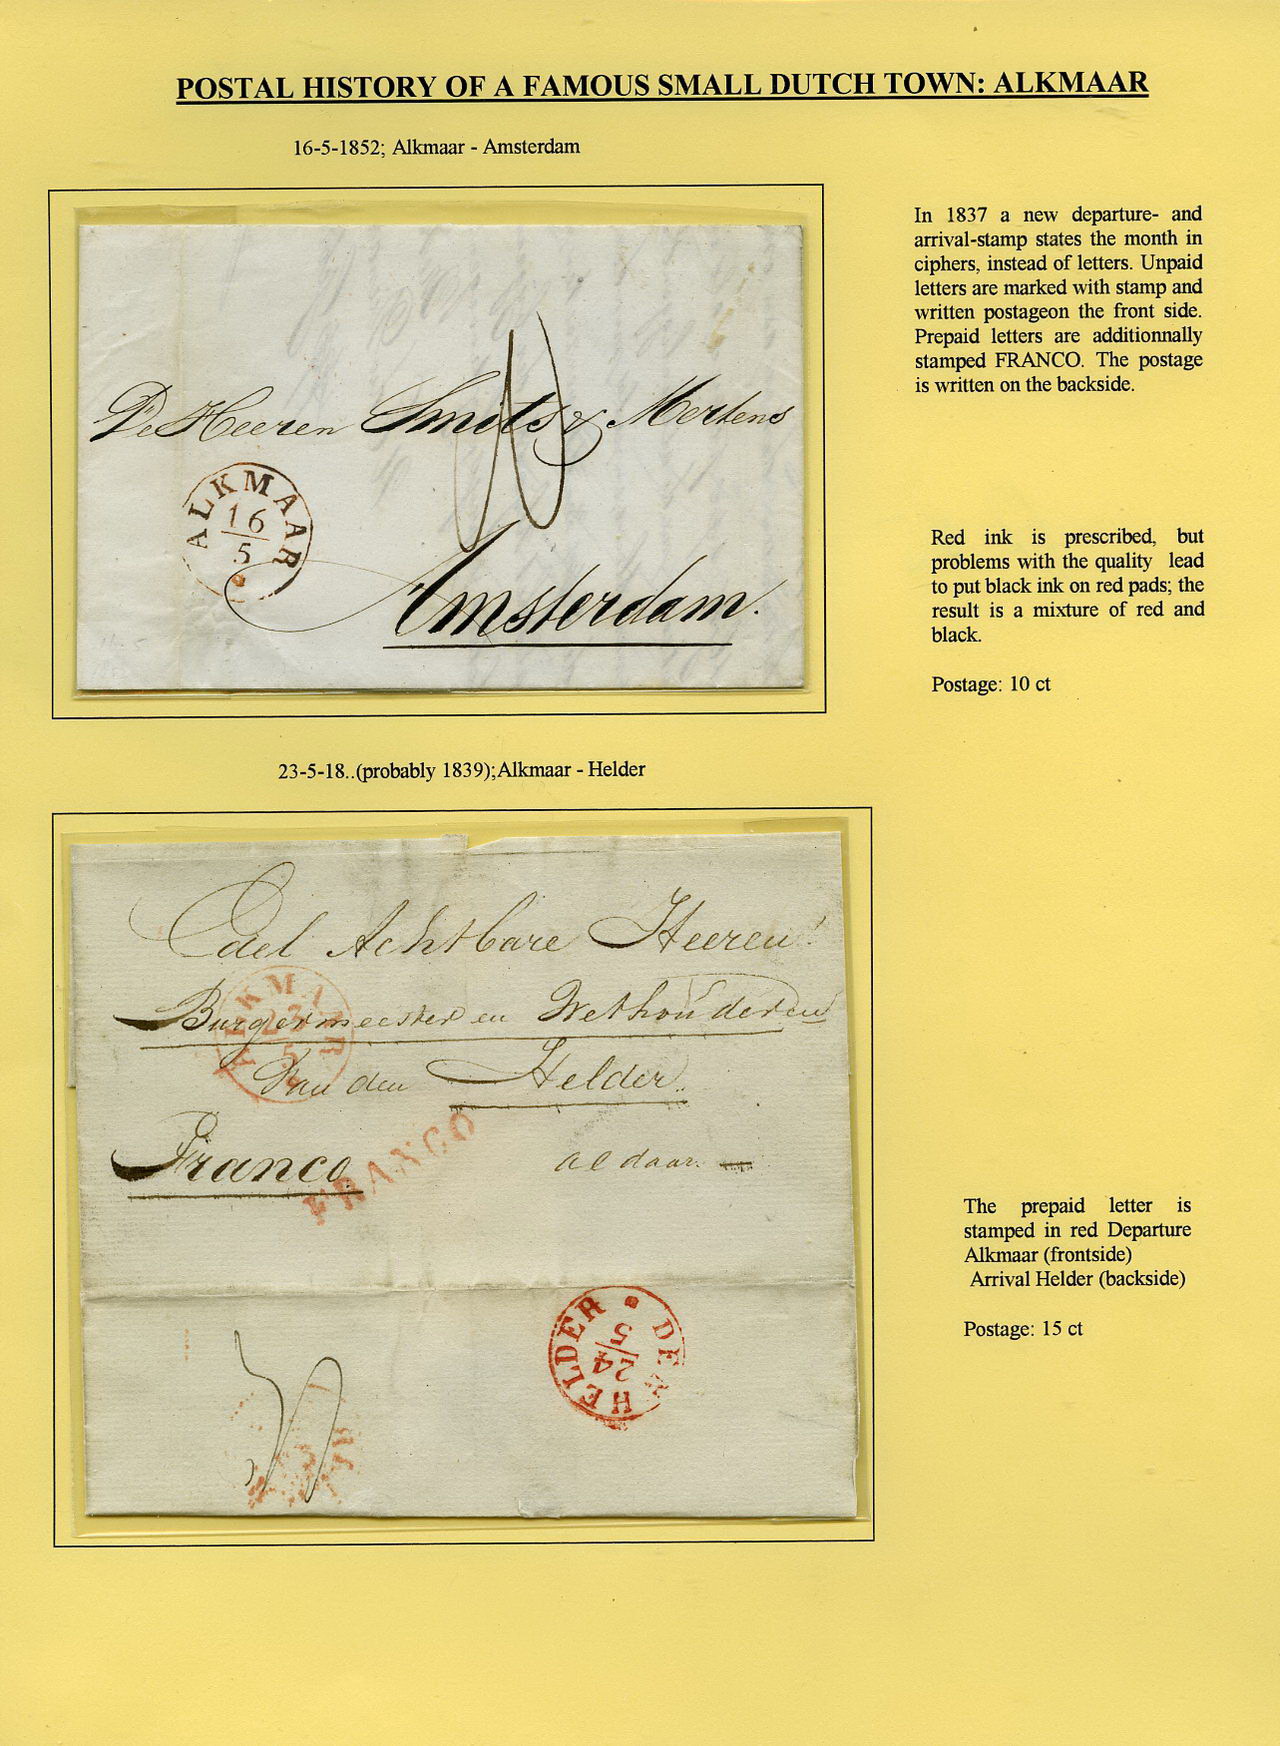 POSTAL HISTORY OF A FAMOUS SMALL DUTCH TOWN: ALKMAAR
16-5-1852; Alkmaar - Amsterdam
In 1837 a new departure- and
arrival-stamp states the month in
ciphers, instead of letters. Unpaid
letters are marked with stamp and
written postageon the front side.
Prepaid letters are additionnally
stamped FRANCO. The postage
is written on the backside.
De Heeren Smits & Mertens
10
ALKMAAR
16
5
Amsterdam.
Red ink is prescribed, but
problems with the quality lead
to put black ink on red pads; the
result is a mixture of red and
black.
Postage: 10 ct
23-5-18..(probably 1839);Alkmaar - Helder
Edel Achtbare Heeren!
Burgermeester en Wethouderen
Van den Helder.
ALKMAAR
23
5
Franco
FRANCO
aldaar.
DEN HELDER
24
5
The prepaid letter is
stamped in red Departure
Alkmaar (frontside)
Arrival Helder (backside)
Postage: 15 ct